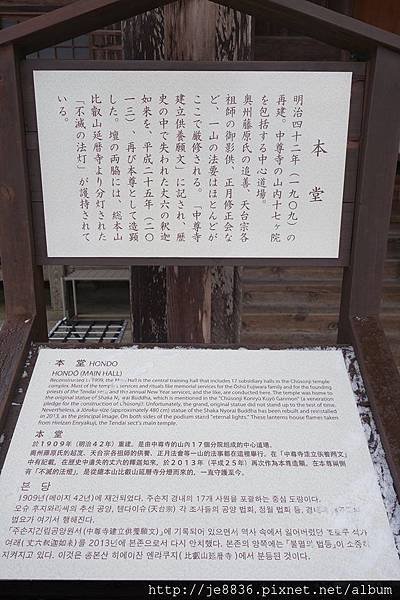 本堂
明治四十二年(一九〇九)の
再建。中尊寺の山内十七ヶ院
を包括する中心道場。
奥州藤原氏の追善、天台宗各
祖師の御影供、正月修正会な
ど、一山の法要はほとんどが
ここで厳修される。「中尊寺
建立供養願文」に記され、歴
史の中で失われた丈六の釈迦
如来を、平成二十五年(二〇
一三)、再び本尊として造顕
した。壇の両脇には、総本山
比叡山延暦寺より分灯された
「不滅の法灯」が護持されて
いる。
本堂 HONDO
HONDO (MAIN HALL)
Reconstructed in 1909, the Main Hall is the central training hall that includes 17 subsidiary halls in the Chūsonji temple
complex. Most of the temple's services and rituals like memorial services for the Ōshū Fujiwara family and for the founding
priests of the Tendai sect, and the annual New Year services, and the like, are conducted here. The temple was home to
the original statue of Shaka Nyorai Buddha, which is mentioned in the "Chūsonji Konryū Kuyō Ganmon" (a veneration
pledge for the construction of Chūsonji). Unfortunately, the grand, original statue did not stand up to the test of time.
Nevertheless, a Jōroku-size (approximately 480 cm) statue of the Shaka Nyorai Buddha has been rebuilt and reinstalled
in 2013, as the principal image. On both sides of the podium stand "eternal lights." These lanterns house flames taken
from Hieizan Enryakuji, the Tendai sect's main temple.
本堂
於1909年(明治42年)重建。是由中尊寺的山内17個分院組成的中心道場。
奧州藤原氏的超度、天台宗各祖師的供養、正月法會等一山的法事都在這裡舉行。在「中尊寺建立供養願文」
中有記載,在歷史中遺失的丈六的釋迦如來,於2013年(平成25年)再次作為本尊造顯。在本尊兩側
有「不滅的法燈」,是從總本山比叡山延曆寺分燈而來的,一直守護至今。
본당
1909년(메이지 42년)에 재건되었다. 주손지 경내의 17개 사원을 포괄하는 중심 도량이다.
오슈 후지와라씨의 추선 공양, 텐다이슈(天台宗) 각 조사들의 공양 법회, 정월 법회 등,
법요가 여기서 행해진다.
「주손지건립공양원서(中尊寺建立供養願文)」에 기록되어 있으면서 역사 속에서 잃어버렸던
여래(丈六釈迦如来)를 2013년에 본존으로서 다시 안치했다. 본존의 양쪽에는 「불멸의 법등」이 소중히
지켜지고 있다. 이것은 총본산 히에이잔 엔랴쿠지(比叡山延暦寺)에서 분등된 것이다.
http://je8836.pixnet.net/album